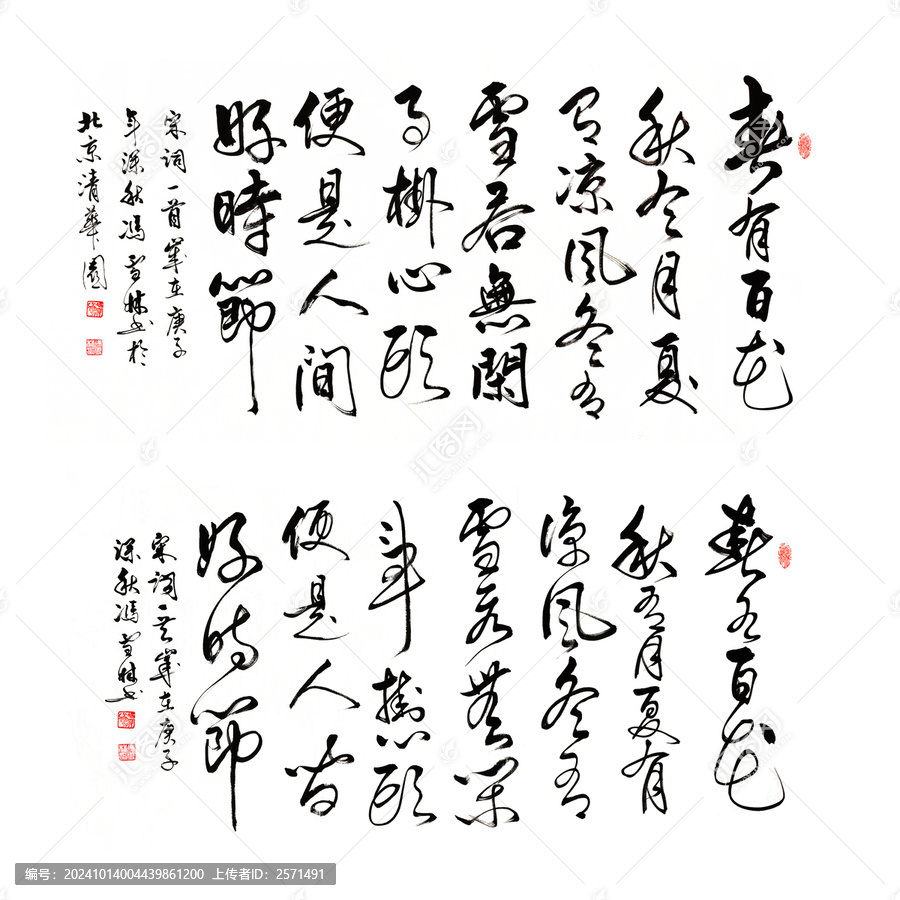 春有百花
秋有月夏
有凉風冬有
雪若無閑
事掛心頭
便是人間
好時節
宋词一首歲在庚子
年深秋馮雪林书於
北京清華園
春有百花
秋有月夏有
凉風冬有
雪若無閑
事掛心頭
便是人间
好时節
宋词一首歲在庚子
深秋馮雪林书
汇图网
编号：20241014004439861200 上传者ID：2571491